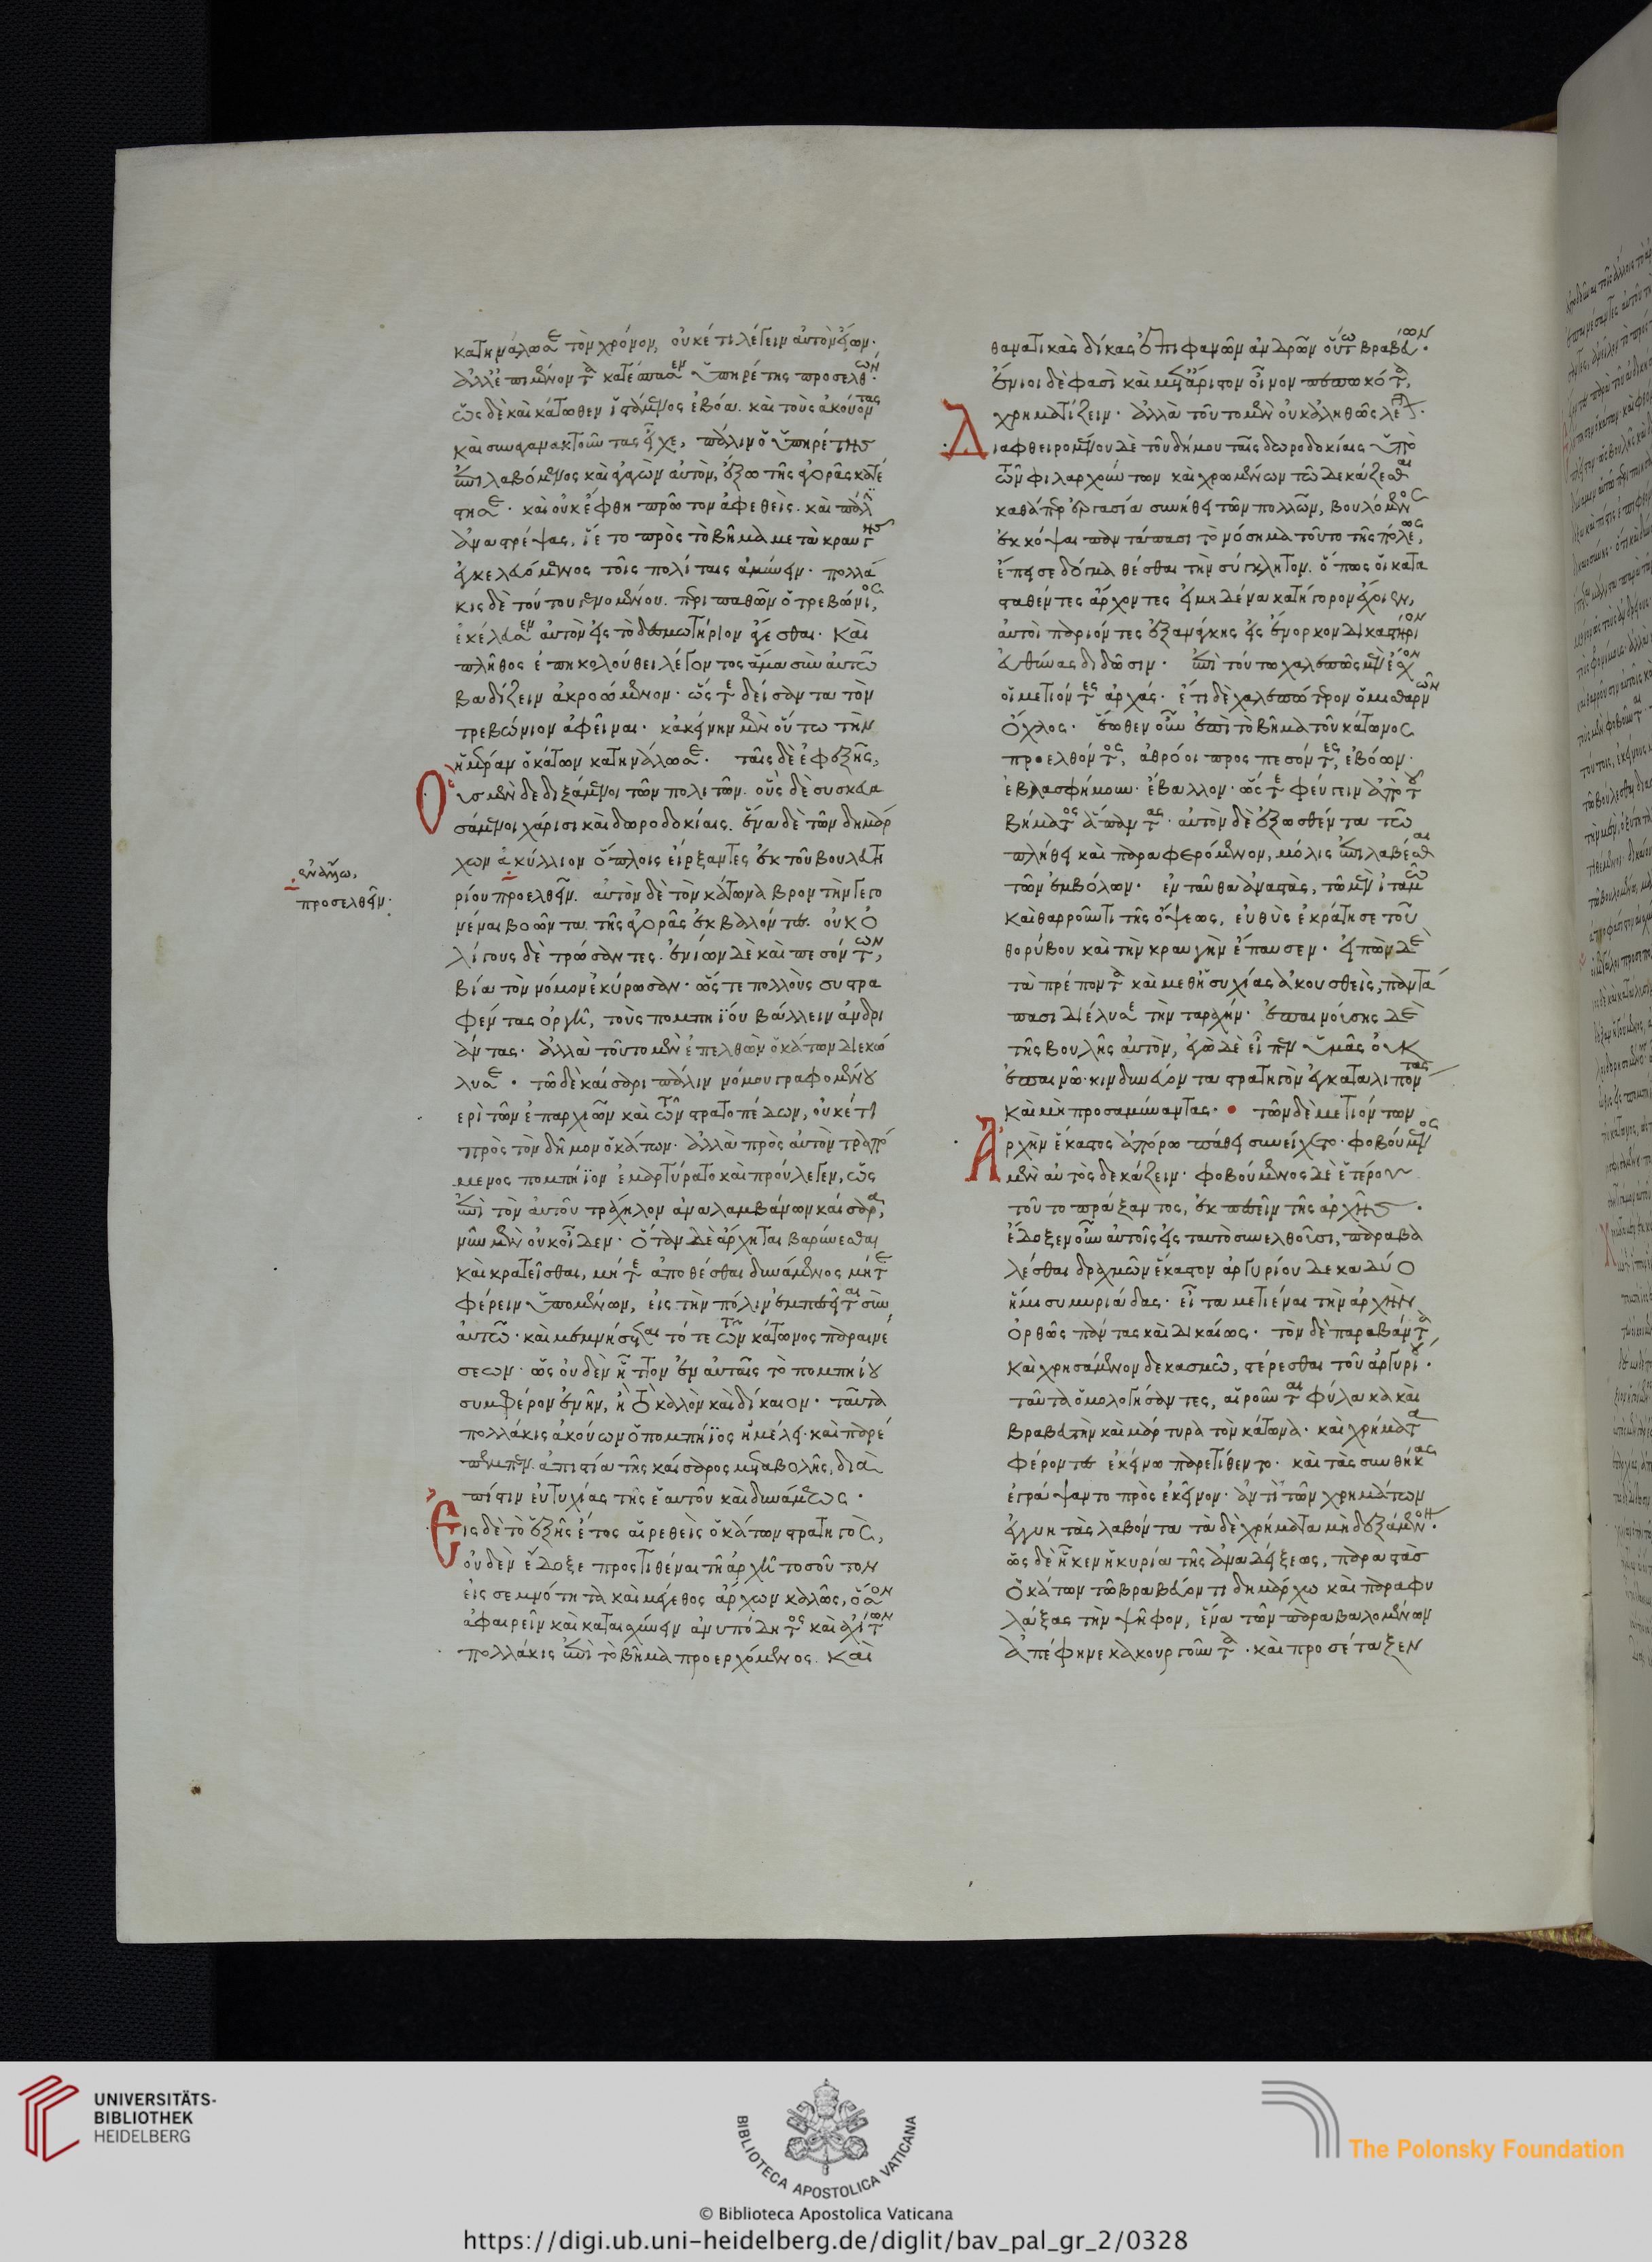 κατηνάλωσε τὸν χρόνον, οὐκέτι λέγειν αὐτὸν εἴων.
ἀλλ' ἐπιμένοντα κατέσπασεν ὑπηρέτης προσελθών.
ὡς δὲ καὶ κάτωθεν ἱστάμενος ἐβόα. καὶ τοὺς ἀκούοντας
καὶ συναγανακτοῦντας εἶχε, πάλιν ὁ ὑπηρέτης
ἐπιλαβόμενος καὶ ἀγαγὼν αὐτὸν, ἔξω τῆς ἀγορᾶς κατέ
στησε. καὶ οὐκ ἔφθη πρῶτον ἀφεθεὶς. καὶ πάλιν
ἀναστρέψας, ἵετο πρὸς τὸ βῆμα μετὰ κραυγῆς
ἐγκελευόμενος τοῖς πολίταις ἀμύνειν. πολλά
κις δὲ τούτου γενομένου. περιπαθῶν ὁ τρεβώνιος,
ἐκέλευσεν αὐτὸν εἰς τὸ δεσμωτήριον ἄγεσθαι. καὶ
πλῆθος ἐπηκολούθει λέγοντος ἅμα σὺν αὐτῶ
βαδίζειν ἀκροώμενον. ὥστε δείσαντα τὸν
τρεβώνιον ἀφεῖναι. κἀκείνην μὲν οὕτω τὴν
ἡμέραν ὁ κάτων κατηνάλωσε. ταῖς δὲ ἐφεξῆς,
Οὓς μὲν δεδιξάμενοι τῶν πολιτῶν. οὓς δὲ συσκευα
σάμενοι χάρισι καὶ δωροδοκίαις. ἕνα δὲ τῶν δημάρ
χων ἀκύλλιον ὅπλοις εἴρξαντες ἐκ τοῦ βουλευτη
ρίου προελθεῖν. αὐτὸν δὲ τὸν κάτωνα βροντὴν γεγο
νέναι βοῶντα τῆς ἀγορᾶς ἐκβαλόντες. οὐκ ὀ
λίγους δὲ τρώσαντες. ἐνίων δὲ καὶ πεσόντων,
βίαι τὸν νόμον ἐκύρωσαν. ὥστε πολλοὺς συστρα
φέντας ὀργῆ, τοὺς πομπηΐου βάλλειν ἀνδρι
άντας. ἀλλὰ τοῦτο μὲν ἐπελθὼν ὁ κάτων διεκώ
λυσε. τῶ δὲ καίσαρι πάλιν νόμου γραφομένου
περὶ τῶν ἐπαρχιῶν καὶ τῶν στρατοπέδων, οὐκέτι
πρὸς τὸν δῆμον ὁ κάτων. ἀλλὰ πρὸς αὐτὸν τραπό
μενος πομπήϊον ἐμαρτύρατο καὶ προύλεγεν, ὡς
ἐπὶ τὸν αὑτοῦ τράχηλον ἀναλαμβάνων καίσαρα,
νῦν μὲν οὐκ οἶδεν. ὅταν δὲ ἄρχηται βαρύνεσθαι
καὶ κρατεῖσθαι, μήτε ἀποθέσθαι δυνάμενος μήτε
φέρειν ὑπομένων, εἰς τὴν πόλιν ἐμπεσεῖται σὺν
αὐτῶ. καὶ μεμνήσεται τότε τῶν κάτωνος παραινέ
σεων. ὡς οὐδὲν ἧττον ἐν αὐταῖς τὸ πομπηίου
συμφέρον ἐνῆν, ἢ τὸ καλὸν καὶ δίκαιον. ταῦτα
πολλάκις ἀκούων ὁ πομπήϊος ἠμέλει. καὶ παρέ
πεμπεν. ἀπιστίαι τῆς καίσαρος μεταβολῆς, διὰ
πίστιν εὐτυχίας τῆς ἑαυτοῦ καὶ δυνάμεως.
Εἰς δὲ τὸ ἑξῆς ἔτος αἱρεθεὶς ὁ κάτων στρατηγὸς,
οὐδὲν ἔδοξε προστιθέναι τῆ ἀρχῆ τοσοῦτον
εἰς σεμνότητα καὶ μέγεθος ἄρχων καλῶς, ὅσον
ἀφαιρεῖν καὶ καταισχύνειν ἀνυπόδητος καὶ ἀχίτων
πολλάκις ἐπὶ τὸ βῆμα προερχόμενος. καὶ
ἐν ἄλλω,
προσελθεῖν.
θανατικὰς δίκας ἐπιφανῶν ἀνδρῶν οὕτω βραβεύων.
ἔνιοι δὲ φασὶ καὶ μετ' ἄριστον οἶνον πεπωκότα,
χρηματίζειν. ἀλλὰ τοῦτο μὲν οὐκ ἀληθῶς λέγεται.
Διαφθειρομένου δὲ τοῦ δήμου ταῖς δωροδοκίαις ὑπὸ
τῶν φιλαρχούντων καὶ χρωμένων τῶ δεκάζεσθαι
καθάπερ ἐργασίαι συνήθει τῶν πολλῶν, βουλόμενος
ἐκκόψαι παντάπασι τὸ νόσημα τοῦτο τῆς πόλεως,
ἔπεισε δόγμα θέσθαι τὴν σύγκλητον. ὅπως οἱ κατα
σταθέντες ἄρχοντες εἰ μηδένα κατήγορον ἔχοιεν,
αὐτοὶ παριόντες ἐξ ἀνάγκης εἰς ἔνορκον δικαστήριον
εὐθύνας διδῶσιν. ἐπὶ τούτω χαλεπῶς μὲν ἔσχον
οἱ μετιόντες ἀρχάς. ἔτι δὲ χαλεπώτερον ὁ μισθαρνῶν
ὄχλος. ἕωθεν οὖν ἐπὶ τὸ βῆμα τοῦ κάτωνος
προελθόντος, ἀθρόοι προσπεσόντες, ἐβόων.
ἐβλασφήμουν. ἔβαλλον. ὥστε φεύγειν ἀπὸ τοῦ
βήματος ἅπαντας. αὐτὸν δὲ ἐξωσθέντα τῶ
πλήθει καὶ παραφερόμενον, μόλις ἐπιλαβέσθαι
τῶν ἐμβόλων. ἐνταῦθα ἀναστὰς, τῶ μὲν ἰταμῶ
καὶ θαρροῦντι τῆς ὄψεως, εὐθὺς ἐκράτησε τοῦ
θορύβου καὶ τὴν κραυγὴν ἔπαυσεν. εἰπὼν δὲ
τὰ πρέποντα καὶ μεθ' ἡσυχίας ἀκουσθεὶς, παντά
πασι διέλυσε τὴν ταραχήν. ἐπαινούσης δὲ
τῆς βουλῆς αὐτὸν, ἐγὼ δὲ εἶπεν ὑμᾶς οὐκ
ἐπαινῶ. κινδυνεύοντα στρατηγὸν ἐγκαταλιπόντας
καὶ μὴ προσαμύναντας. τῶν δὲ μετιόντων
Ἀρχὴν ἕκαστος ἀπόρω πάθει συνείχετο. φοβούμενος
μὲν αὐτὸς δεκάζειν. φοβούμενος δὲ ἑτέρου
τοῦτο πράξαντος, ἐκπεσεῖν τῆς ἀρχῆς.
ἔδοξεν οὖν αὐτοῖς εἰς ταυτὸ συνελθοῦσι, παραβα
λέσθαι δραχμῶν ἕκαστον ἀργυρίου δεκαδύο
ἥμισυ μυριάδας. εἶτα μετιέναι τὴν ἀρχὴν
ὀρθῶς πάντας καὶ δικαίως. τὸν δὲ παραβάντα
καὶ χρησάμενον δεκασμῶ, στέρεσθαι τοῦ ἀργυρίου.
ταῦτα ὁμολογήσαντες, αἱροῦνται φύλακα καὶ
βραβευτὴν καὶ μάρτυρα τὸν κάτωνα. καὶ χρήματα
φέροντες ἐκείνω παρετίθεντο. καὶ τὰς συνθήκας
ἐγράψαντο πρὸς ἐκεῖνον. ἀντὶ τῶν χρημάτων
ἐγγυητὰς λαβόντα τὰ δὲ χρήματα μὴ δεξάμενον.
ὡς δὲ ἧκεν ἡ κυρία τῆς ἀναδείξεως, παραστὰς
ὁ κάτων τῶ βραβεύοντι δημάρχω καὶ παραφυ
λάξας τὴν ψῆφον, ἕνα τῶν παραβαλομένων
ἀπέφηνε κακουργοῦντα. καὶ προσέταξεν
UNIVERSITÄTS-
BIBLIOTHEK
HEIDELBERG
BIBLIOTECA APOSTOLICA VATICANA
The Polonsky Foundation
© Biblioteca Apostolica Vaticana
https://digi.ub.uni-heidelberg.de/diglit/bav_pal_gr_2/0328